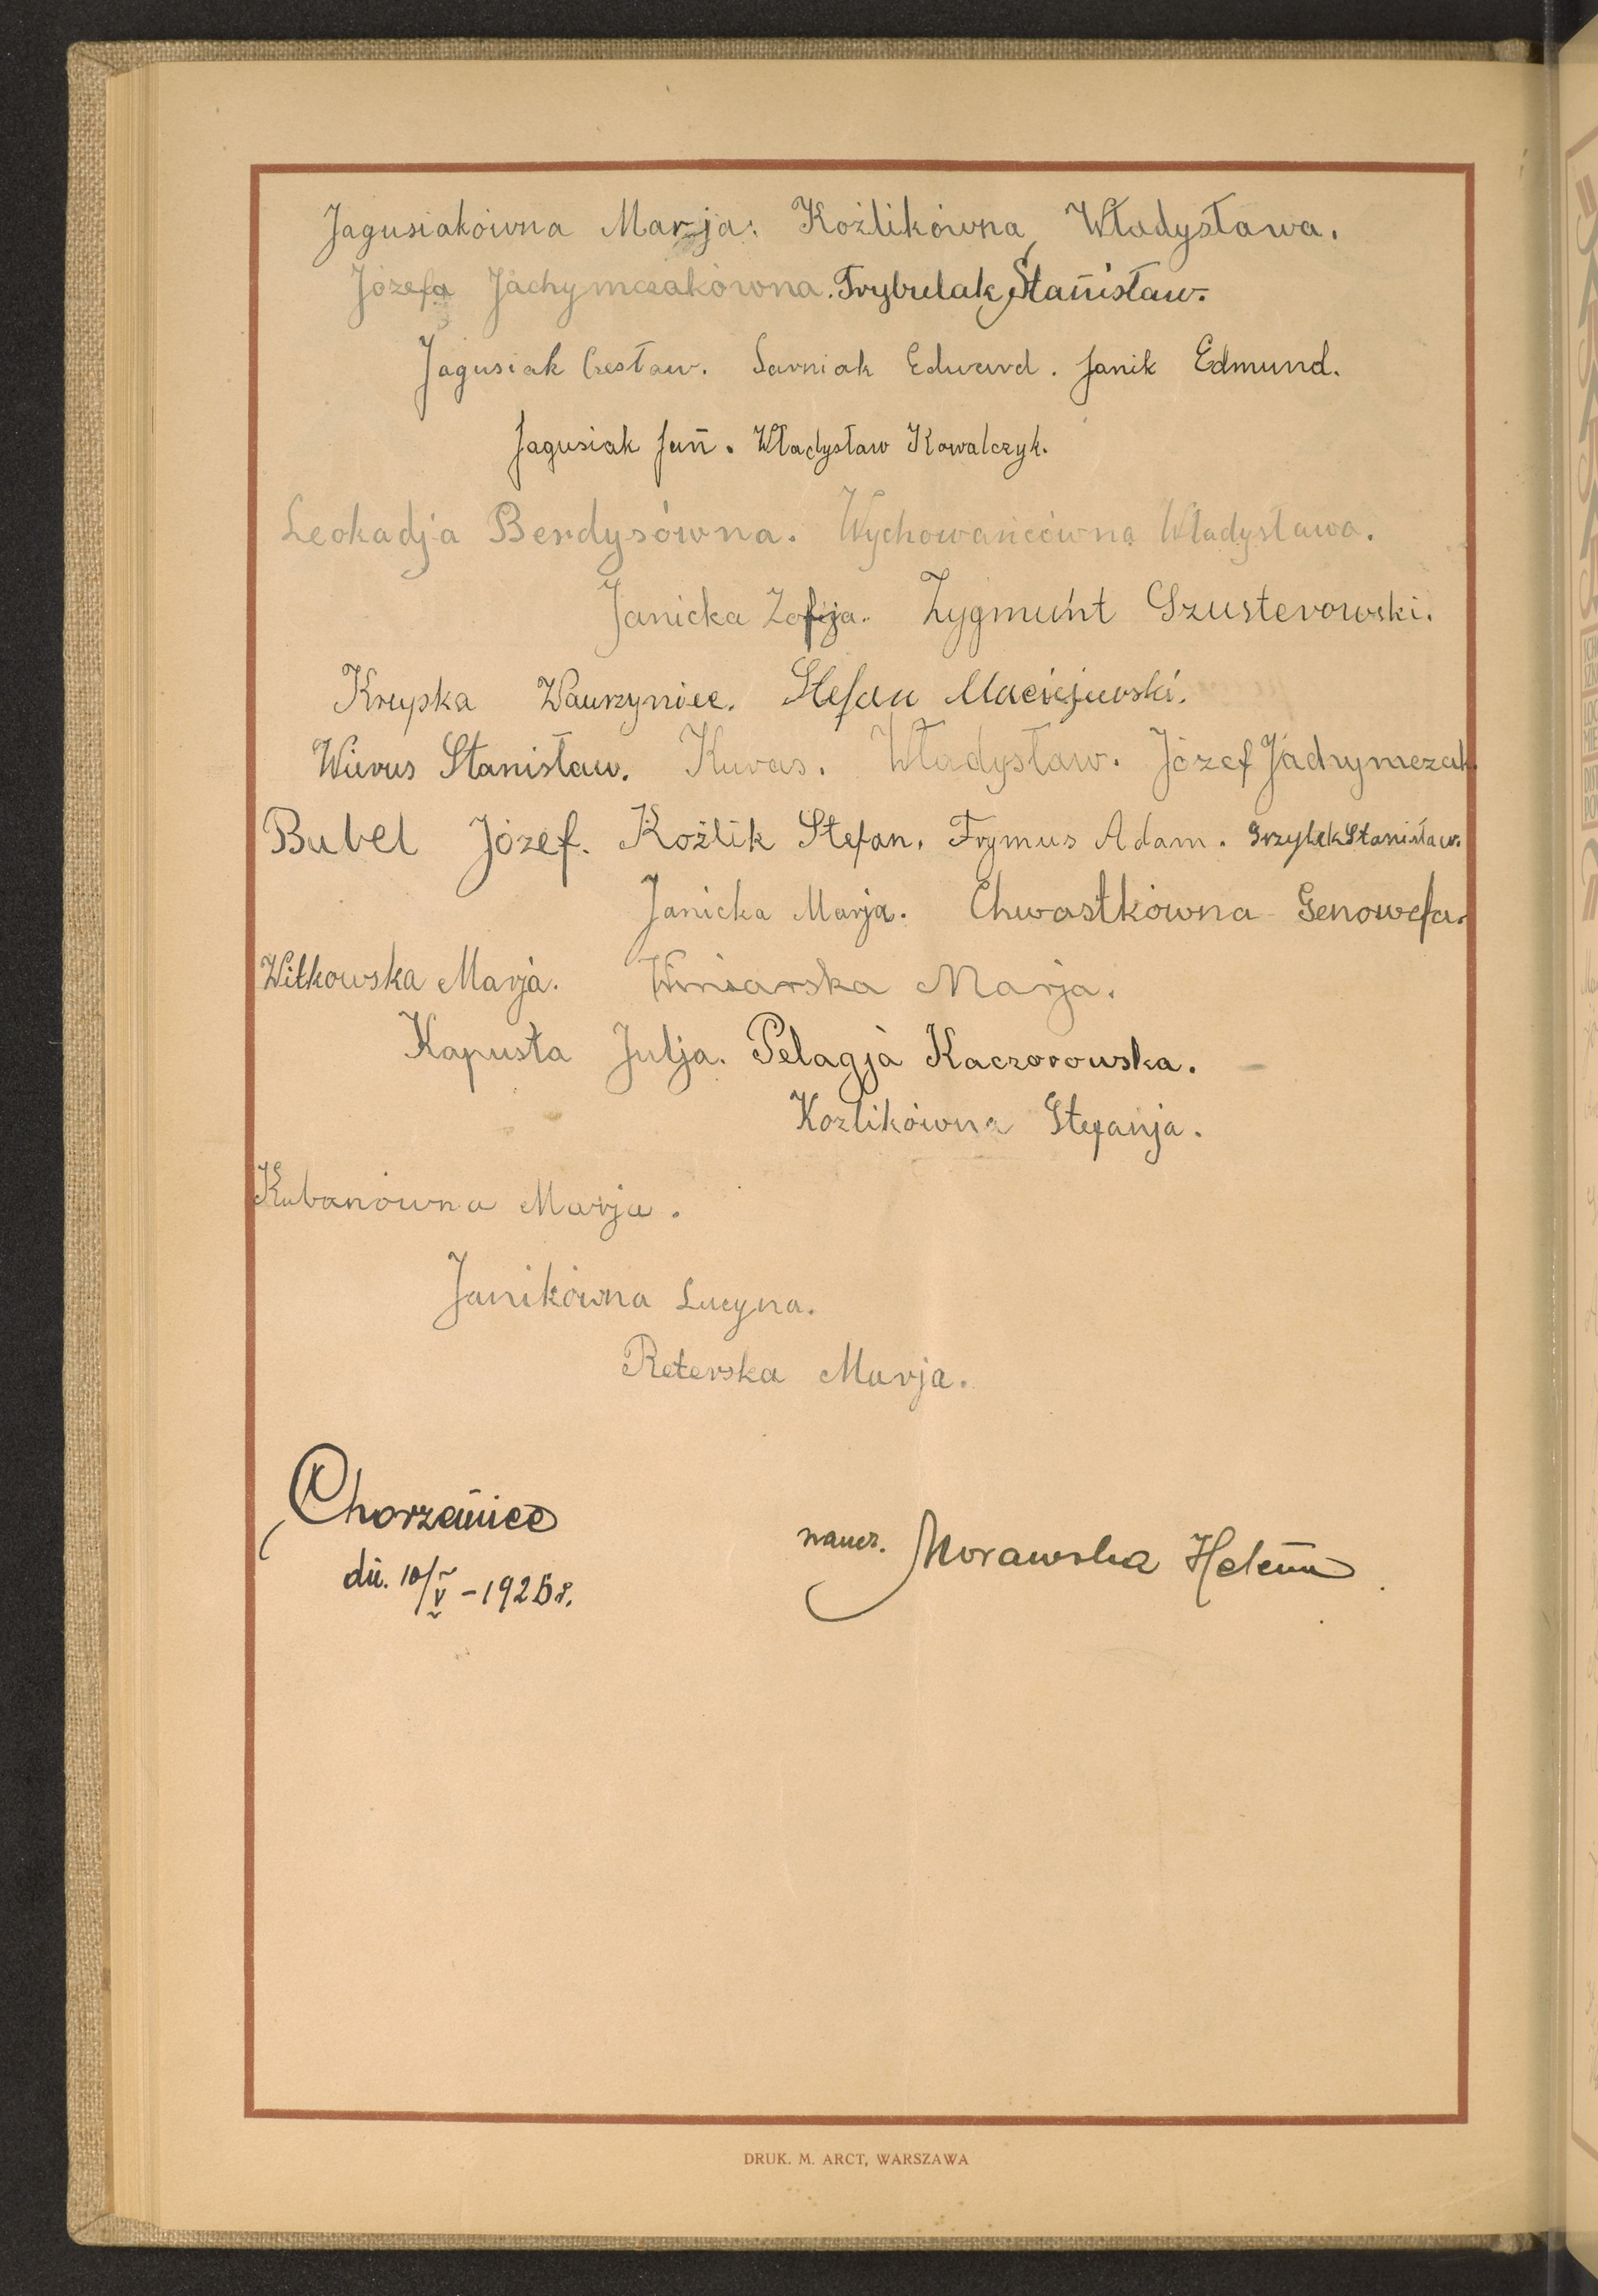 Jagusiakówna Marja. Koźlikówna Władysława.
Józefa Jachymczakówna. Trybulak Stanisław.
Jagusiak Czesław. Sarniak Edward. Janik Edmund.
Jagusiak Jan. Władysław Kowalczyk.
Leokadja Berdysówna. Wychowańcówna Władysława.
Janicka Zofja. Zygmunt Szusterowski.
Krupka Wawrzyniec. Stefan Maciejewski.
Wirus Stanisław. Kuras. Władysław. Józef Jachymczak.
Bubel Józef. Koźlik Stefan. Frymus Adam. Grzylak Stanisław.
Janicka Marja. Chwastkówna Genowefa.
Witkowska Marja. Winiarska Marja.
Kapusta Julja. Pelagja Kaczorowska.
Kozlikówna Stefanja.
Kubanówna Marja.
Janikówna Lucyna.
Reterska Marja.
Chorzenice
dn. 10/V - 1926 r.
naucz. Morawska Helena
DRUK. M. ARCT, WARSZAWA